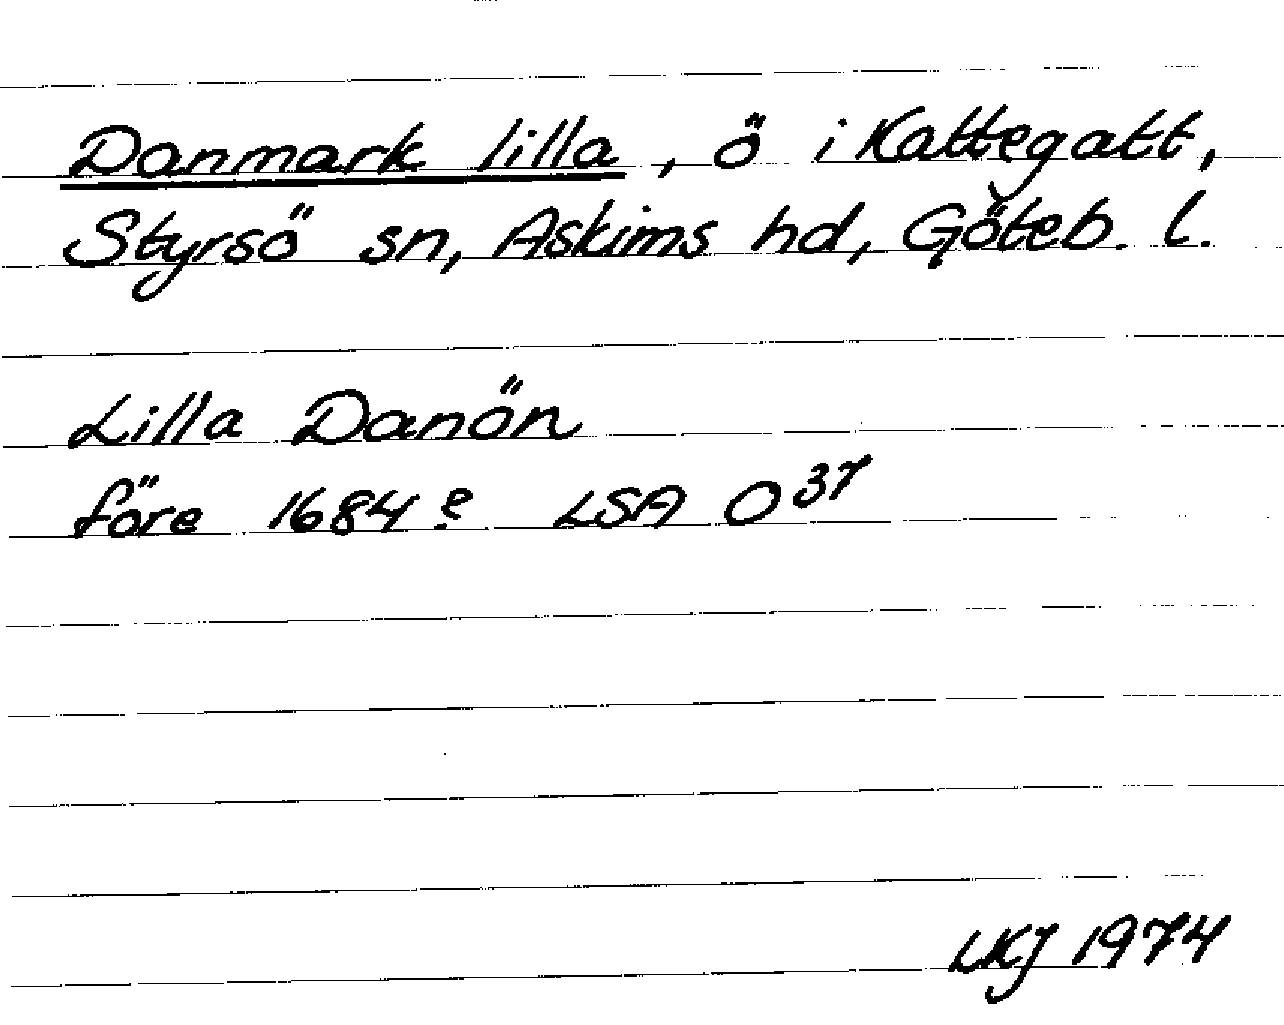 Danmark lilla, ö i Kattegatt,
Styrsö sn, Askims hd, Göteb. l.
Lilla Danön
före 1684? LSA O 37
LKJ 1974